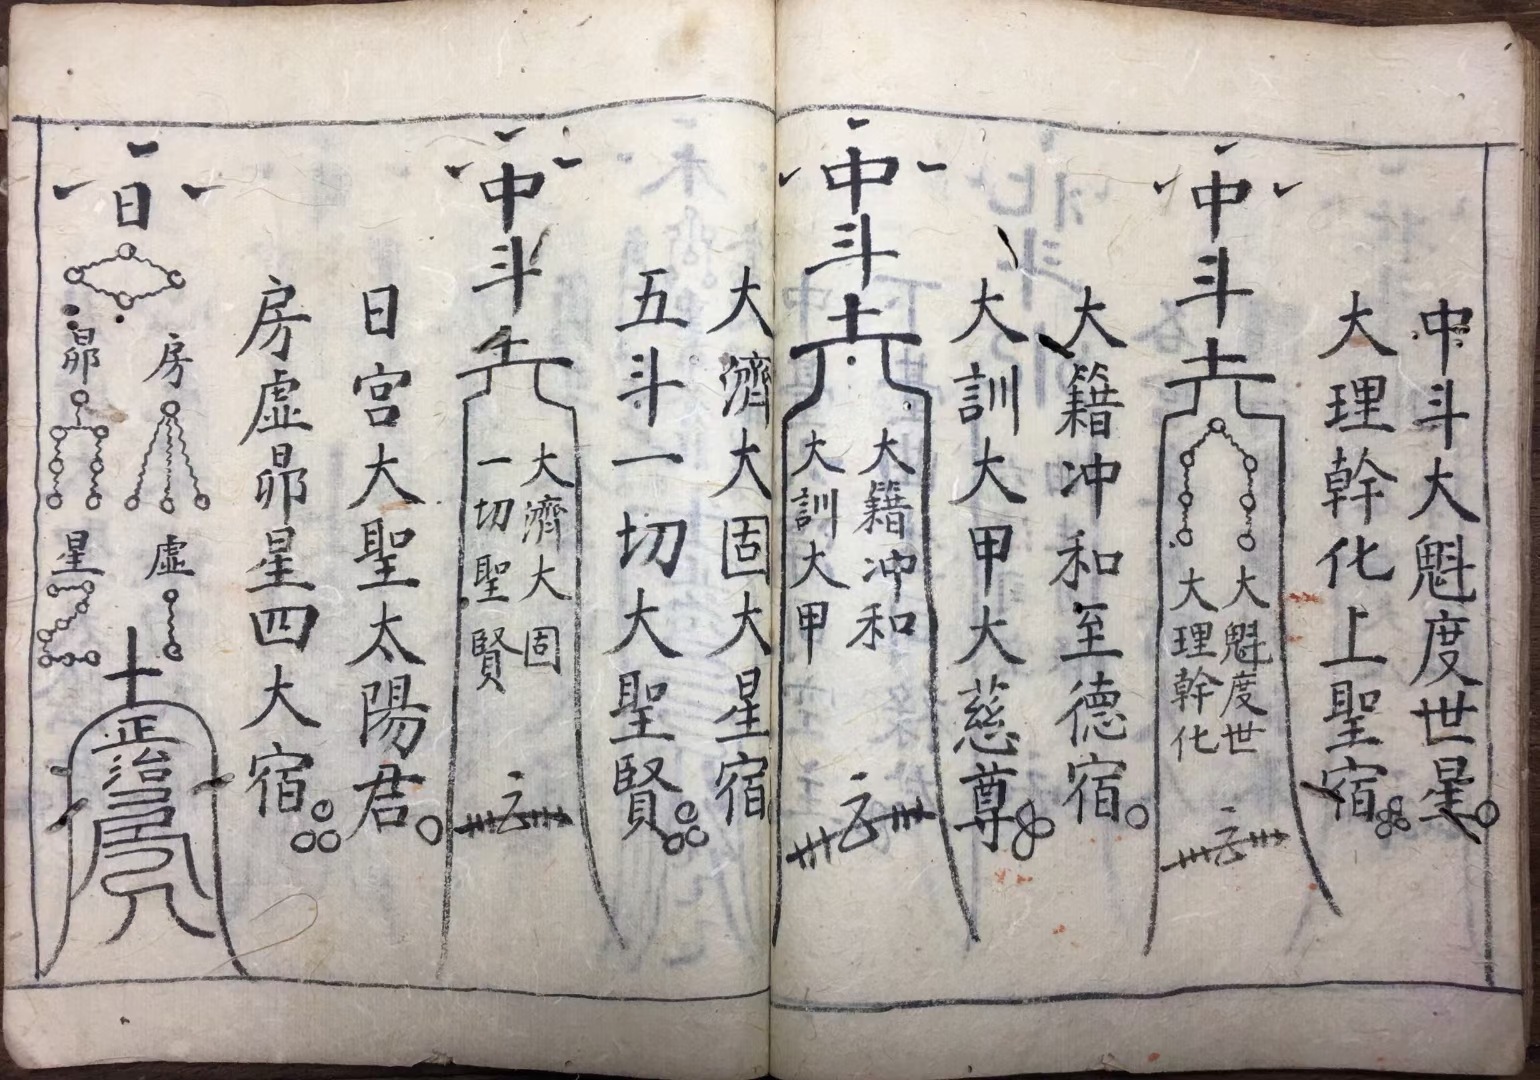 中斗大魁度世星
大理幹化上聖宿
中斗
大魁度世
大理幹化
大籍冲和至德宿
大訓大甲大慈尊
中斗
大籍冲和
大訓大甲
大濟大固大星宿
五斗一切大聖賢
中斗
大濟大固
一切聖賢
日宮大聖太陽君
房虛昴星四大宿
日
房
昴
虛
星